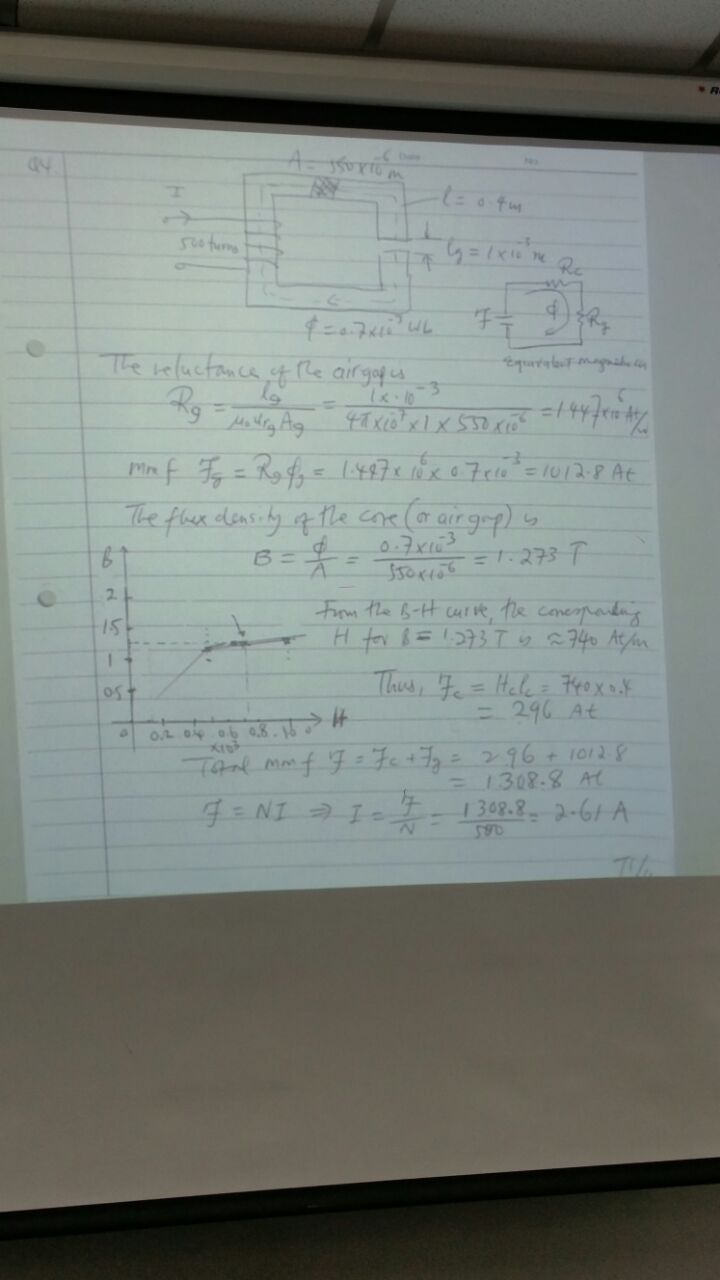 Q4
A = 550x10⁻⁶ m
I
l = 0.4m
500 turns
lg = 1x10⁻³ m
Rc
F
ϕ
Rg
ϕ = 0.7x10⁻³ Wb
Equivalent magnetic
The reluctance of the airgap is
Rg = lg/μ₀μrgAg = 1x10⁻³/4πx10⁷x1x550x10⁻⁶ = 1.447x10⁶ At/
mmf Fg = Rgϕg = 1.447x10⁶x0.7x10⁻³ = 1012.8 At
The flux density of the core (or air gap) is
B = ϕ/A = 0.7x10⁻³/550x10⁻⁶ = 1.273 T
B
2
1.5
1
0.5
0 0.2 0.4 0.6 0.8 1.0 H
x10³
From the B-H curve, the corresponding
H for B = 1.273 T is ≈ 740 At/m
Thus, Fc = Hclc = 740x0.4
= 296 At
Total mmf F = Fc + Fg = 296 + 1012.8
= 1308.8 At
F = NI ⇒ I = F/N = 1308.8/500 = 2.61 A